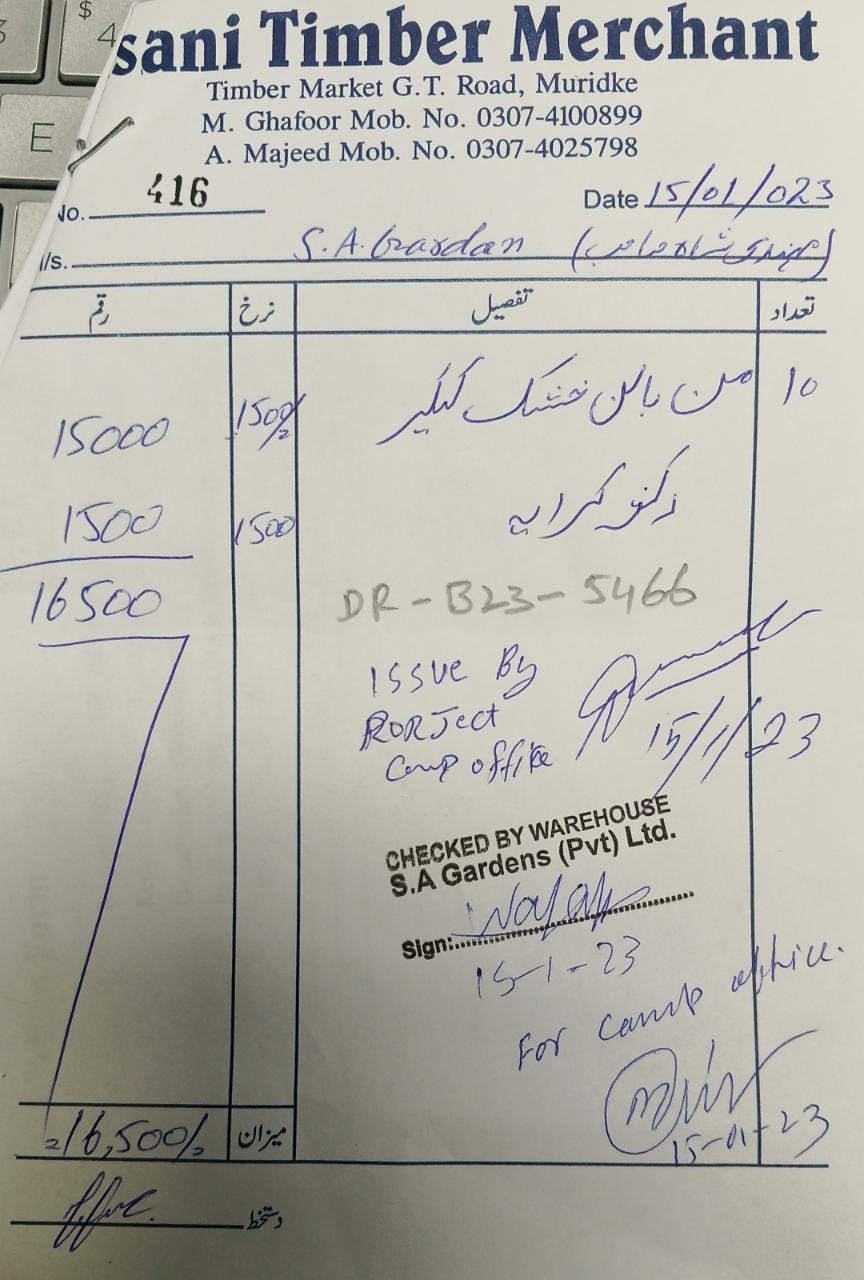 sani Timber Merchant
Timber Market G.T. Road, Muridke
M. Ghafoor Mob. No. 0307-4100899
A. Majeed Mob. No. 0307-4025798
No. 416 Date 15/01/023
/s. S.A. Gardan (مہندی شاہ صاحب)
تعداد تفصیل نرخ رقم
10 من بالن خشک کیکر 1500/2 15000
رکشہ کرایہ 1500 1500
16500
DR-B23-5466
ISSUE By
PRORJect
Camp office
15/1/23
CHECKED BY WAREHOUSE
S.A Gardens (Pvt) Ltd.
Sign:
15-1-23
For camp office.
15-01-23
میزان 16,500/2
دستخط
$
4
E